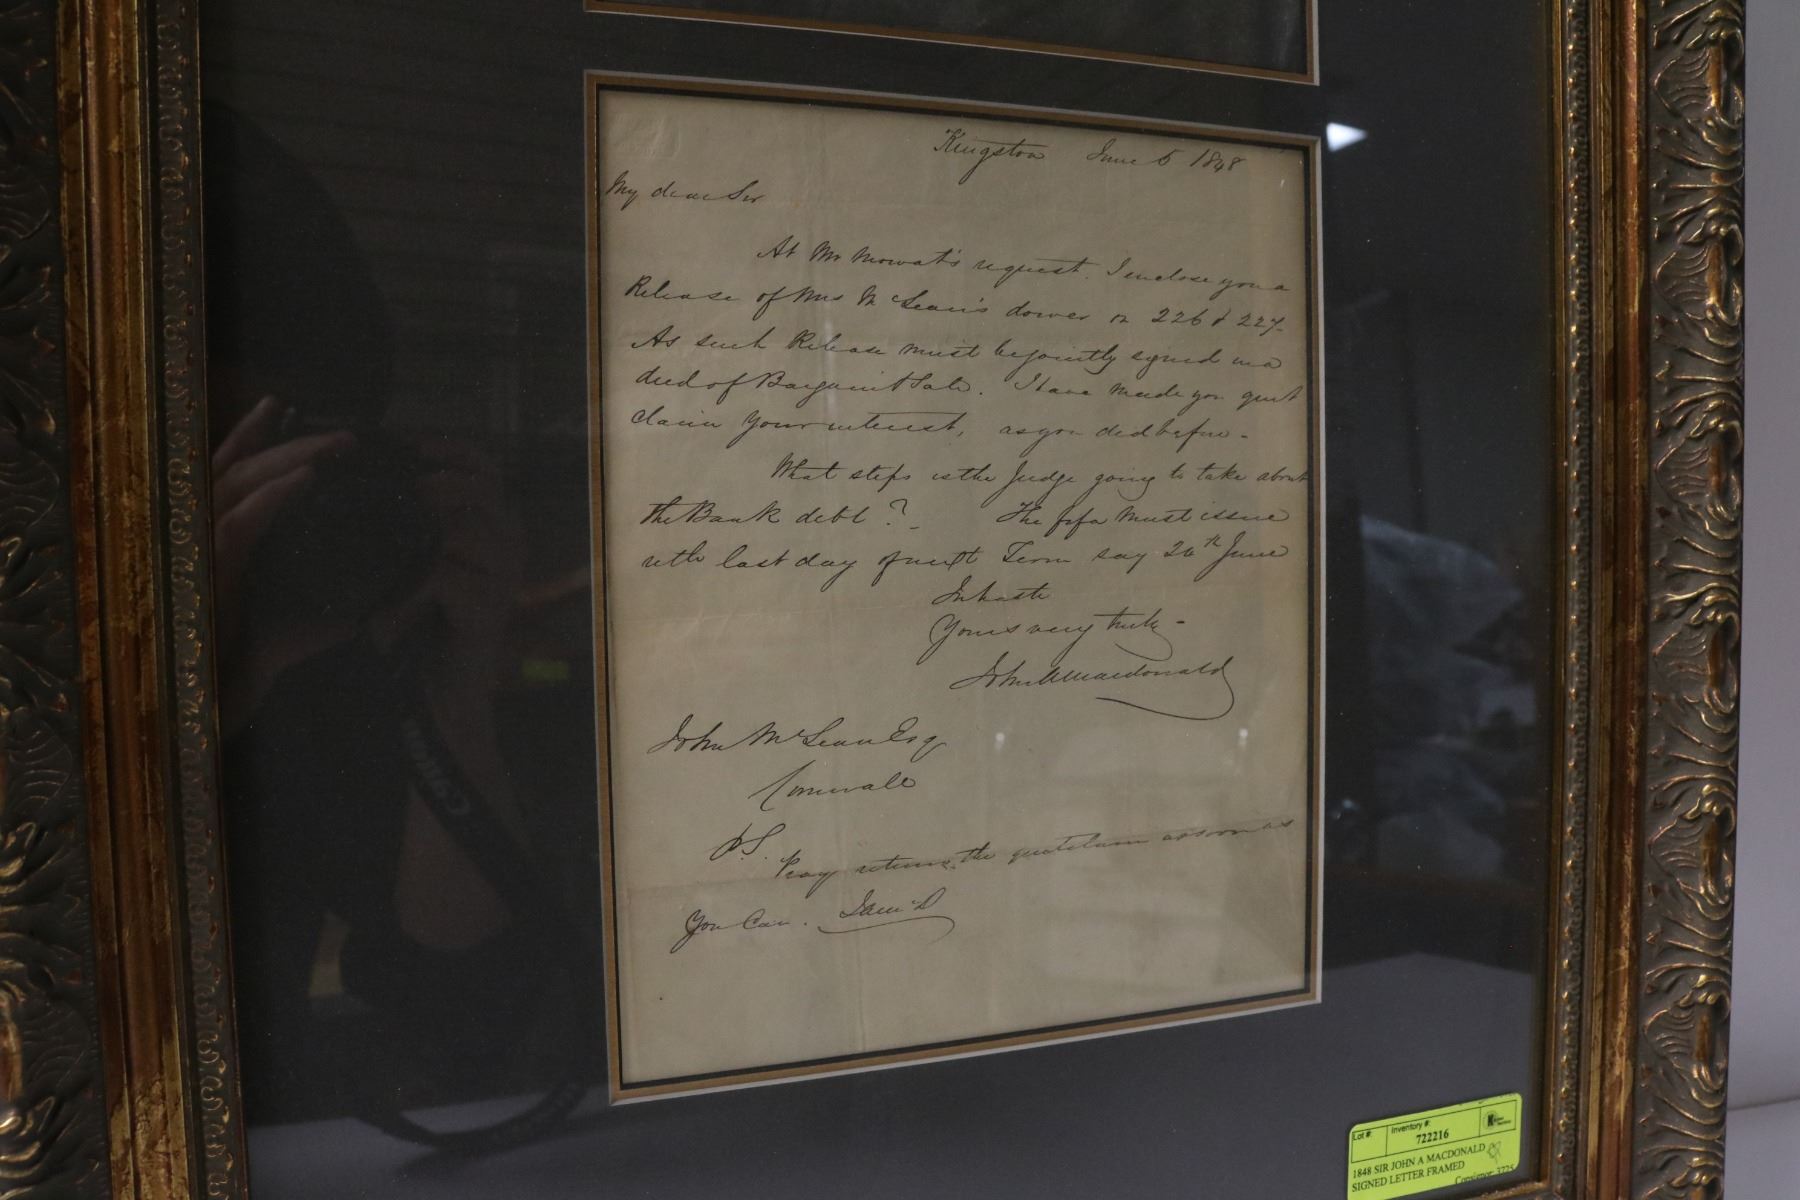 Kingston June 5 1848
My dear Sir
At Mr Mowat's request. I enclose you a
Release of Mrs McLean's dower on 226 & 227-
As such Release must be jointly signed in a
deed of Bargain & Sale. I have made you quit
claim your interest, as you did before -
What steps is the Judge going to take about
the Bank debt ? The fifa must issue
last day of next Term say 24th June
In haste
Yours very truly -
John A Macdonald
John McLean Esq
Cornwall
P.S. Pray return the as soon as
you can.
Lot #:
Inventory #:
722216
1848 SIR JOHN A MACDONALD
SIGNED LETTER FRAMED
Consignor: 3725
Canon